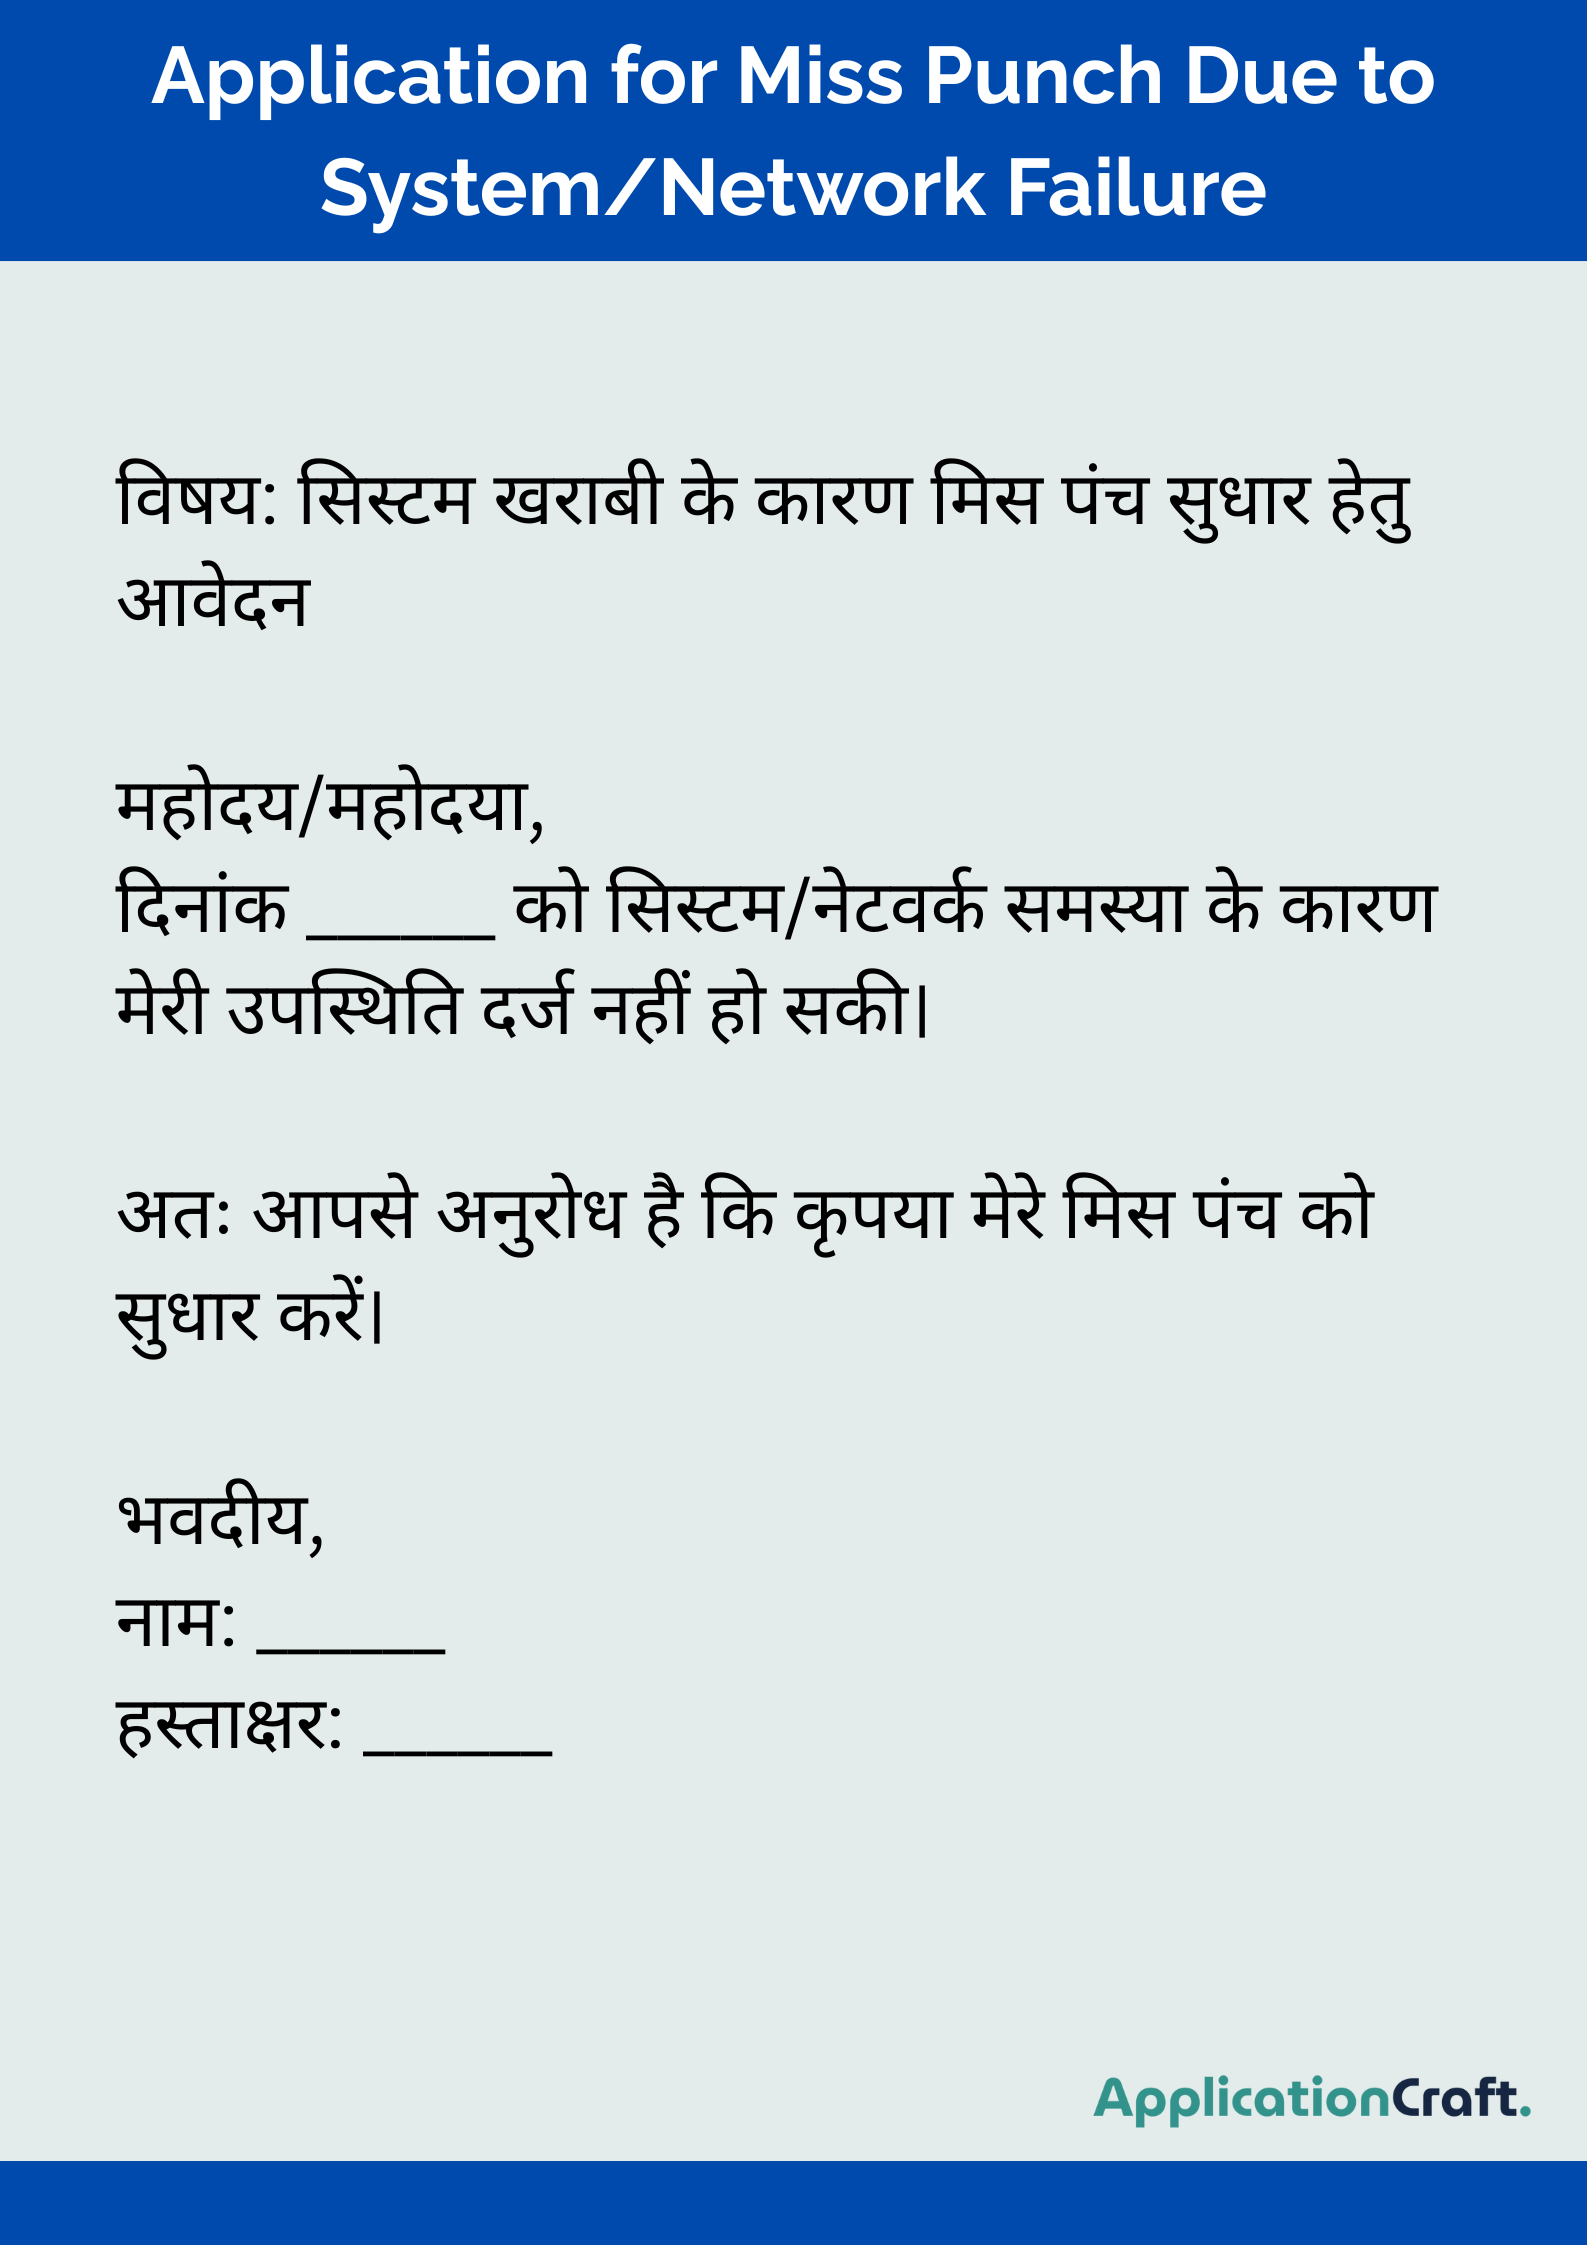 Application for Miss Punch Due to
System/Network Failure
विषय: सिस्टम खराबी के कारण मिस पंच सुधार हेतु
आवेदन
महोदय/महोदया,
दिनांक ______ को सिस्टम/नेटवर्क समस्या के कारण
मेरी उपस्थिति दर्ज नहीं हो सकी।
अतः आपसे अनुरोध है कि कृपया मेरे मिस पंच को
सुधार करें।
भवदीय,
नाम: ______
हस्ताक्षर: ______
ApplicationCraft.